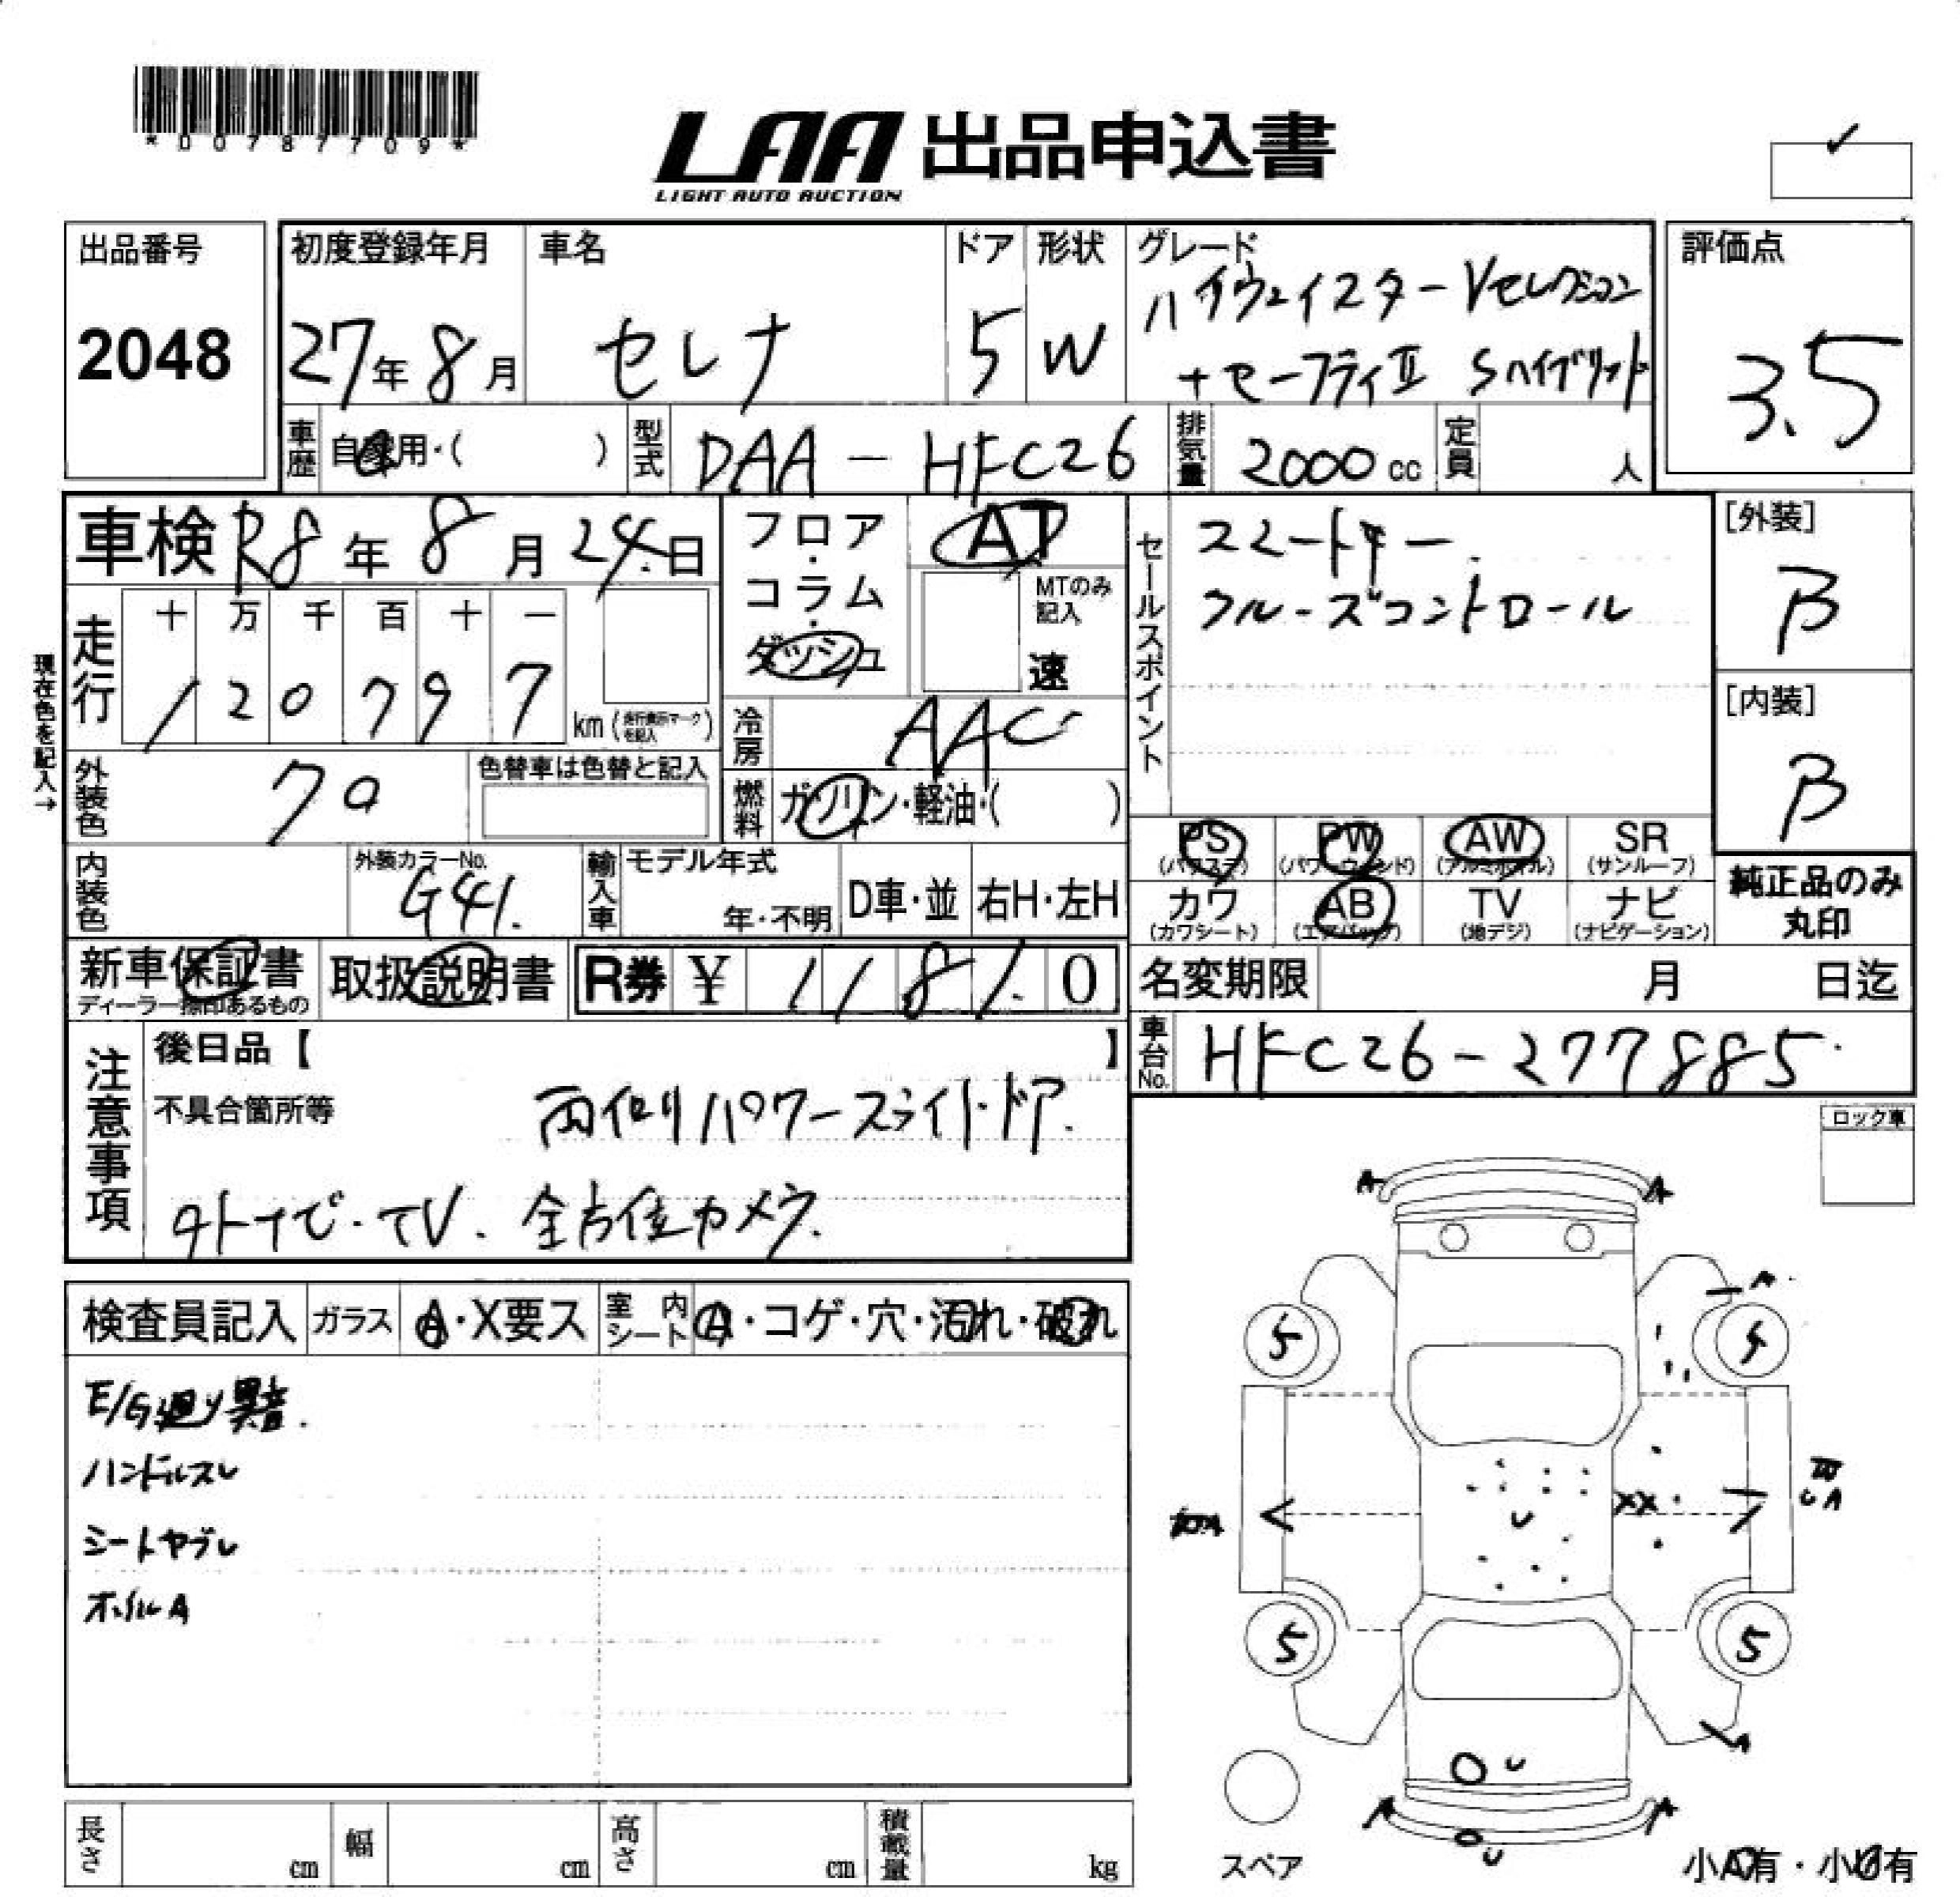 *D0787709*
LAA 出品申込書
LIGHT AUTO AUCTION
出品番号
2048
初度登録年月
27年8月
車名
セレナ
ドア
5
形状
W
グレード
ハイウェイスターVセレクション
+セーフティⅡ Sハイブリッド
評価点
3.5
車歴
自家用・( )
型式
DAA-HFC26
排気量
2000cc
定員
人
車検 R8年8月24日
フロア・コラム・ダッシュ
AT
MTのみ記入
速
走行
十 万 千 百 十 一
1 2 0 7 9 7 km (走行表示マークを記入)
現在色を記入→
冷房
AAC
外装色
色替車は色替と記入
燃料
ガソリン・軽油・( )
内装色
外装カラーNo.
G41.
輸入車
モデル年式
年・不明
D車・並
右H・左H
セールスポイント
スマートキー.
クルーズコントロール
[外装]
B
[内装]
B
PS (パワステ)
PW (パワーウィンド)
AW (アルミホイル)
SR (サンルーフ)
カワ (カワシート)
AB (エアバッグ)
TV (地デジ)
ナビ (ナビゲーション)
純正品のみ
丸印
新車保証書
ディーラー捺印あるもの
取扱説明書
R券 ¥ 1 1 8 1. 0
名変期限 月 日迄
車台No.
HFC26-277885.
注意事項
後日品【 】
不具合箇所等
両側パワースライドドア.
TV. 全方位カメラ.
ロック車
検査員記入
ガラス
A・X要ス
室内シート
A・コゲ・穴・汚れ・破れ
E/G廻り異音.
ハンドルスレ
シートヤブレ
ホイルA
A A
A
5 5
XX
U
UA
5 5
A
U
A A
U
スペア
小A有・小U有
長さ cm
幅 cm
高さ cm
積載量 kg